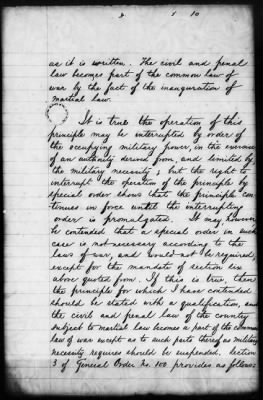 as it is written. The civil and penal
law becomes part of the common law of
war by the fact of the inauguration of
martial law.
It is true the operation of this
principle may be interrupted by order of
the occupying military power, in the exercise
of an authority derived from, and limited by,
the military necessity; but the right to
interrupt the operation of the principle by
special order shows that the principle con-
tinues in force until the interrupting
order is promulgated. It may, however,
be contended that a special order in such
case is not necessary according to the
laws of war, and would not be required,
except for the mandate of section six
above quoted from. If this is true, then
the principle for which I have contended
should be stated with a qualification, and
the civil and penal law of the country
subject to martial law becomes a part of the common
law of war except as to such parts thereof as military
necessity requires should be suspended. Section
3 of General Order No. 100 provides as follows: